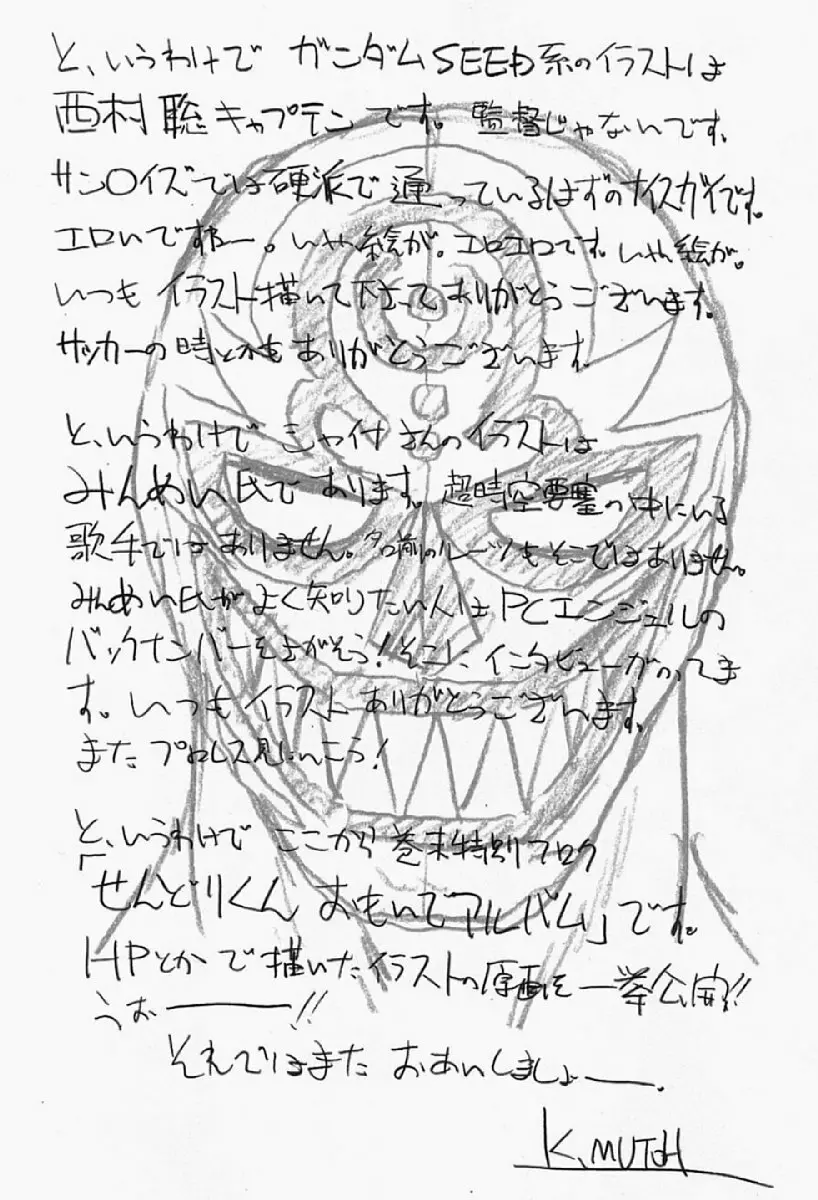 と、いうわけで ガンダムSEED系のイラストは
西村聡キャプテンです。監督じゃないです。
サン〇イズでは硬派で通っているはずのナイスガイです。
エロいですねー。いや絵が。エロエロです。いや絵が。
いつもイラスト描いて下さってありがとうございます。
サッカーの時とかもありがとうございます。
と、いうわけで シャイナさんのイラストは
みんめい氏であります。超時空要塞の中にいる
歌手ではありません。名前のルーツもそこではありません。
みんめい氏がよく知りたい人はPCエンジェルの
バックナンバーをさがそう!そこにインタビューがのってま
す。いつもイラストありがとうございます。
またプロレス見にいこう!
と、いうわけで ここから巻末特別フロク
「せんどりくん おもいでアルバム」です。
HPとかで描いたイラストの原画を一挙公開!!
うおーーー!!
それではまた おあいしましょーー。
K.MUTOH